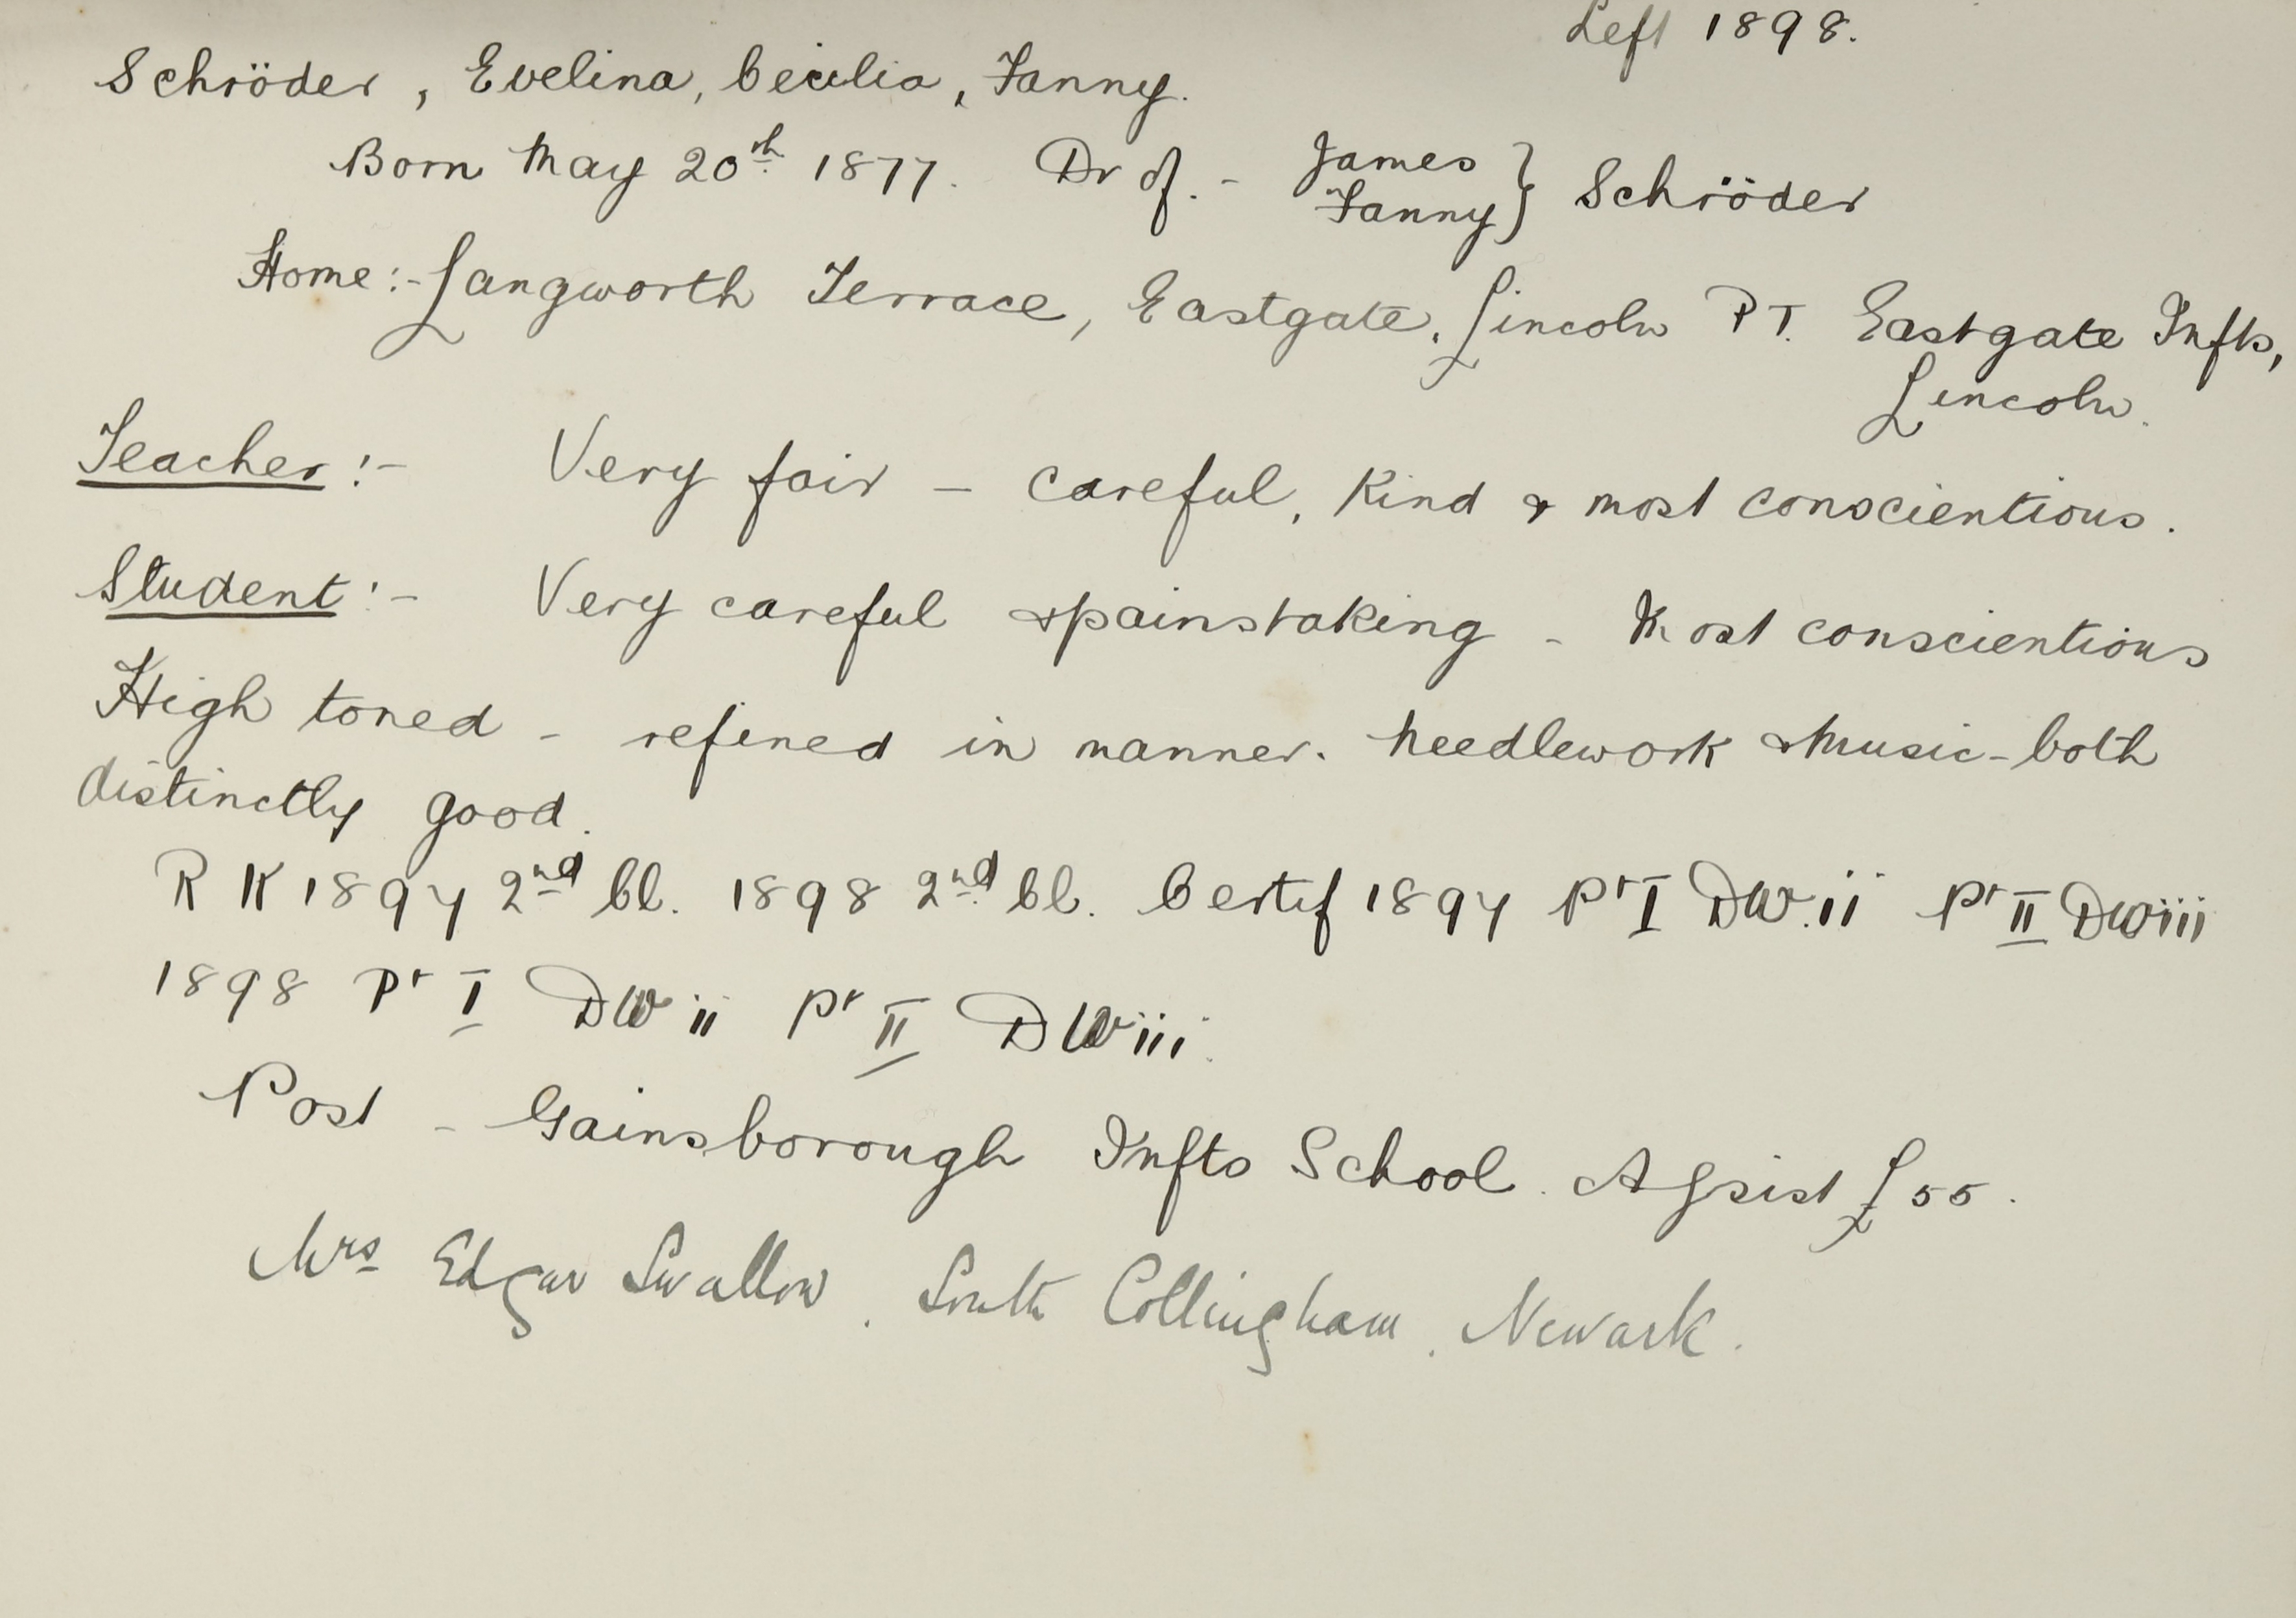 Left 1898.
Schröder, Evelina, Cecilia, Fanny.
Born May 20th 1877. Dr of. - James
Fanny } Schröder
Home:- Langworth Terrace, Eastgate, Lincoln P T. Eastgate Infts,
Lincoln.
Teacher:- Very fair - careful, kind & most conscientious.
Student:- Very careful & painstaking - Most conscientious
High toned - refined in manner. Needlework & Music - both
distinctly good.
R K 1897 2nd Cl. 1898 2nd Cl. Certif 1897 Pt I DW.ii Pt II DWiii
1898 Pt I DW ii Pt II DWiii.
Post - Gainsborough Infts School. Assist £55.
Mrs Edgar Swallow, South Collingham, Newark.